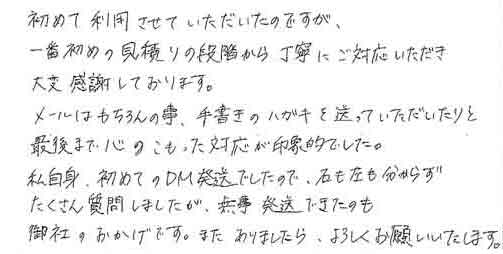 初めて利用させていただいたのですが、
一番初めの見積りの段階から丁寧にご対応いただき
大変感謝しております。
メールはもちろんの事、手書きのハガキを送っていただいたりと
最後まで心のこもった対応が印象的でした。
私自身、初めてのDM発送でしたので、右も左も分からず
たくさん質問しましたが、無事発送できたのも
御社のおかげです。また ありましたら、よろしくお願いいたします。